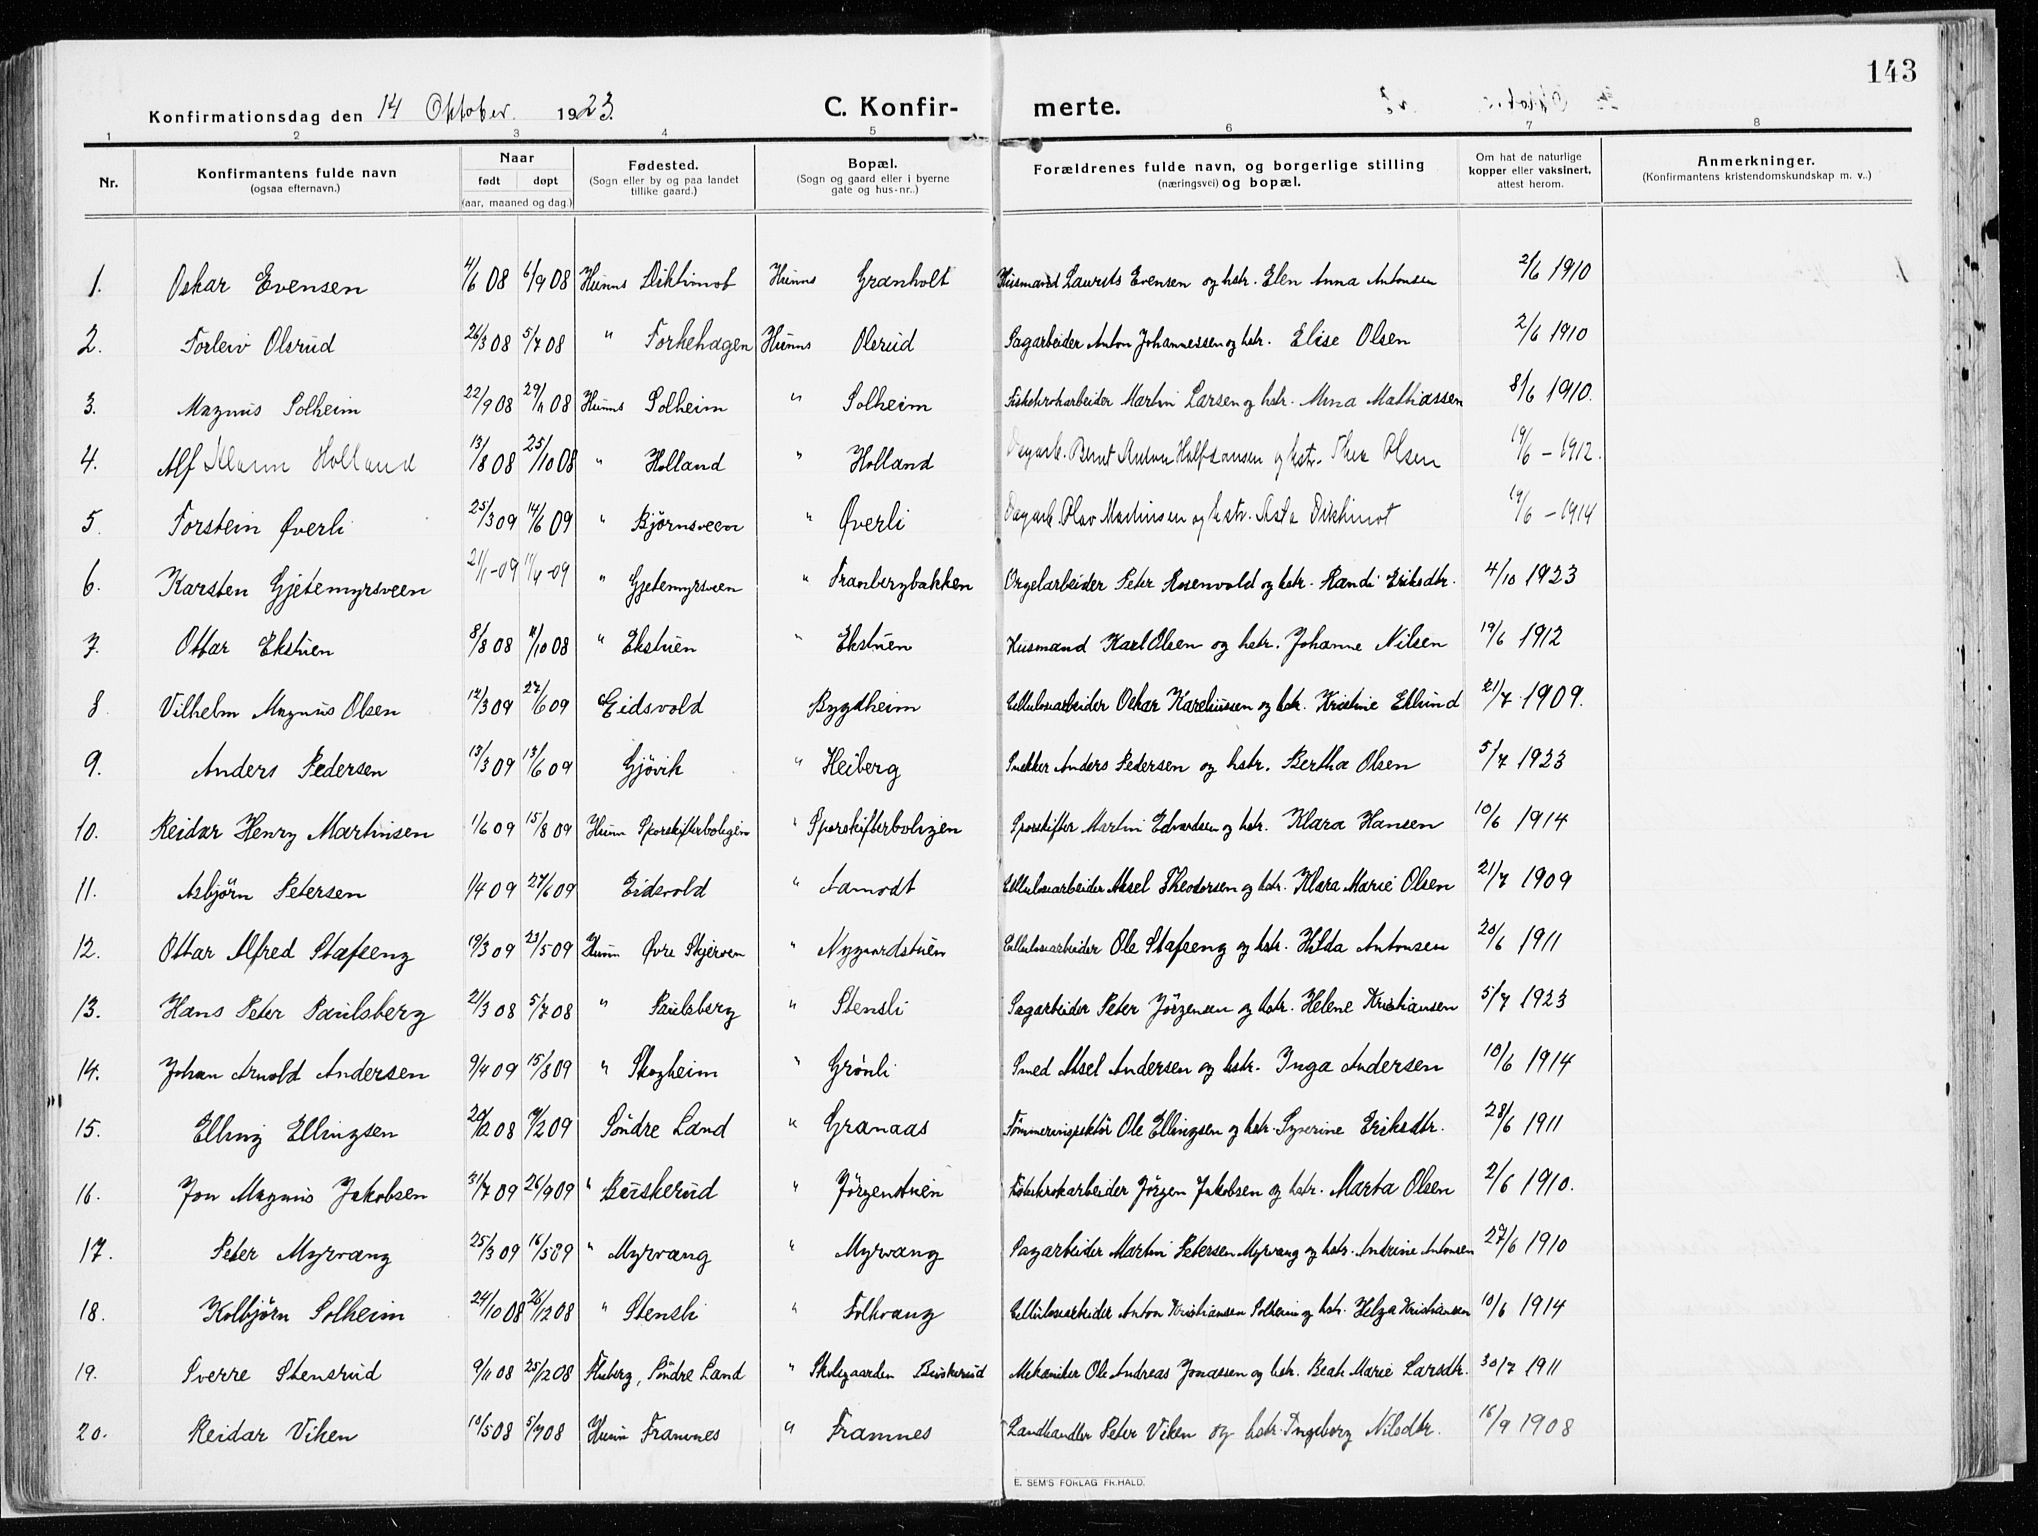 143
Konfirmationsdag den 14 Oktober 1923. C. Konfir- merte.
1 2 3 4 5 6 7 8
Nr. Konfirmantens fulde navn (ogsaa efternavn.) Naar født døpt (aar, maaned og dag.) Fødested. (Sogn eller by og paa landet tillike gaard.) Bopæl. (Sogn og gaard eller i byerne gate og hus-nr..) Forældrenes fulde navn, og borgerlige stilling (næringsvei) og bopæl. Om hat de naturlige kopper eller vaksinert, attest herom. Anmerkninger. (Konfirmantens kristendomskundskap m. v..)
1. Oskar Evensen 4/6 08 6/9 08 Hunns Diktimot Hunns Granholt Husmand Laurits Evensen og hstr. Elen Anna Antonsen 2/6 1910
2. Torleiv Olsrud 26/3 08 5/7 08 " Forkehagen Hunns Olsrud Sagarbeider Anton Johannessen og hstr. Elise Olsen 2/6 1910
3. Magnus Solheim 22/9 08 29/11 08 Hunns Solheim " Solheim Fiskekrokarbeider Martin Larsen og hstr. Mina Mathiassen 8/6 1910.
4. Alf Holland 13/8 08 25/10 08 " Holland " Holland Dagarb. Bernt Anton Halfdansen og hstr. Thea Olsen 19/6 – 1912.
5. Torstein Øverli 25/3 09 14/6 09 " Bjørnsveen " Øverli Dagarb. Olav Martinsen og hstr. Asta Dikhimot 19/6 – 1914
6. Karsten Gjetemyrsveen 21/1-09 11/4-09 " Gjetemyrsveen " Tranbergbakken Orgelarbeider Peter Rosenvold og hstr. Randi Eriksdtr. 4/10 1923
7. Ottar Ekstuen 8/8 08 11/10 08 " Ekstuen " Ekstuen Husmand Karl Olsen og hstr. Johanne Nilsen 19/6 1912
8 Vilhelm Magnus Olsen 12/3 09 27/6 09 Eidsvold Bygdheim Cellulosearbeider Oskar Kareliussen og hstr. Kristine Eklund 21/7 1909.
9. Anders Pedersen 13/3 09 13/6 09 Gjövik " Heiberg Snekker Anders Pedersen og hstr. Bertha Olsen 5/7 1923
10. Reidar Henry Martinsen 1/6 09 15/8 09 Hunn Sporskifterboligen " Sporskifterboligen Sporskifter Martin Edvardsen og hstr. Klara Hansen 10/6 1914
11. Asbjörn Petersen 1/4 09 27/6 09 Eidsvold " Aamodt Cellulosearbeider Aksel Theodorsen og hstr. Klara Marie Olsen 21/7 1909
12. Ottar Alfred Stafseng 19/3 09 23/5 09 Hunn Øvre Skjerven " Nygaardstuen Cellulosearbeider Ole Stafseng og hstr. Hilda Antonsen 28/6 1911
13. Hans Peter Paulsberg 21/3 08 5/7 08 " Paulsberg " Stensli Sagarbeider Peter Jörgensen og hstr. Helene Kristiansen 5/7 1923
14. Johan Arnold Andersen 9/4 09 15/8 09 " Skogheim " Grönli Smed Aksel Andersen og hstr. Inga Andersen 10/6 1914
15. Elling Ellingsen 20/12 08 7/2 09 Söndre Land " Granaas Tömmerinspektör Ole Ellingsen og hstr. Syverine Eriksdtr. 28/6 1911
16. Jon Magnus Jakobsen 31/7 09 26/9 09 " Buskerud " Jörgenstuen Fiskekrokarbeider Jörgen Jakobsen og hstr. Marta Olsen 2/6 1910.
17. Peter Myrvang 25/3 09 16/5 09 " Myrvang " Myrvang Sagarbeider Martin Petersen Myrvang og hstr. Andrine Antonsen 27/6 1910
18. Kolbjörn Solheim 24/10 08 26/12 08 " Stensli " Folkvang Cellulosearbeider Anton Kristiansen Solheim og hstr. Helga Kristiansen 10/6 1914
19. Sverre Stensrud 9/11 08 25/12 08 Fluberg, Söndre Land " Skolegaarden Buskerud Mekaniker Ole Andreas Jonassen og hstr. Beate Marie Larsdtr. 30/7 1911
20. Reidar Viken 10/5 08 5/7 08 Hunn Framnes " Framnes Landhandler Peter Viken og hstr. Ingeborg Nilsdtr. 16/9 1908
E. SEM'S FORLAG FR.HALD.